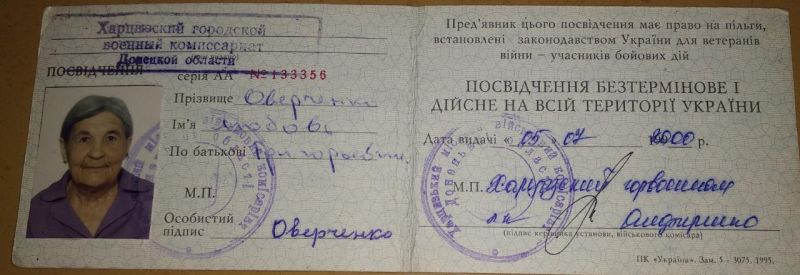 Харцизский городской
военный комиссариат
Донецкой области
ПОСВІДЧЕННЯ
серія АА № 133356
Прізвище Оверченко
Ім'я Любовь
По батькові Григорьевна
М.П.
Особистий
підпис Оверченко
Пред'явник цього посвідчення має право на пільги,
встановлені законодавством України для ветеранів
війни – учасників бойових дій
ПОСВІДЧЕННЯ БЕЗТЕРМІНОВЕ І
ДІЙСНЕ НА ВСІЙ ТЕРИТОРІЇ УКРАЇНИ
Дата видачі « 05 07 2000 р.
М.П. Харцизский горвоенком
(підпис керівника установи, військового комісара)
ПК «Україна». Зам. 5 - 3075. 1995.